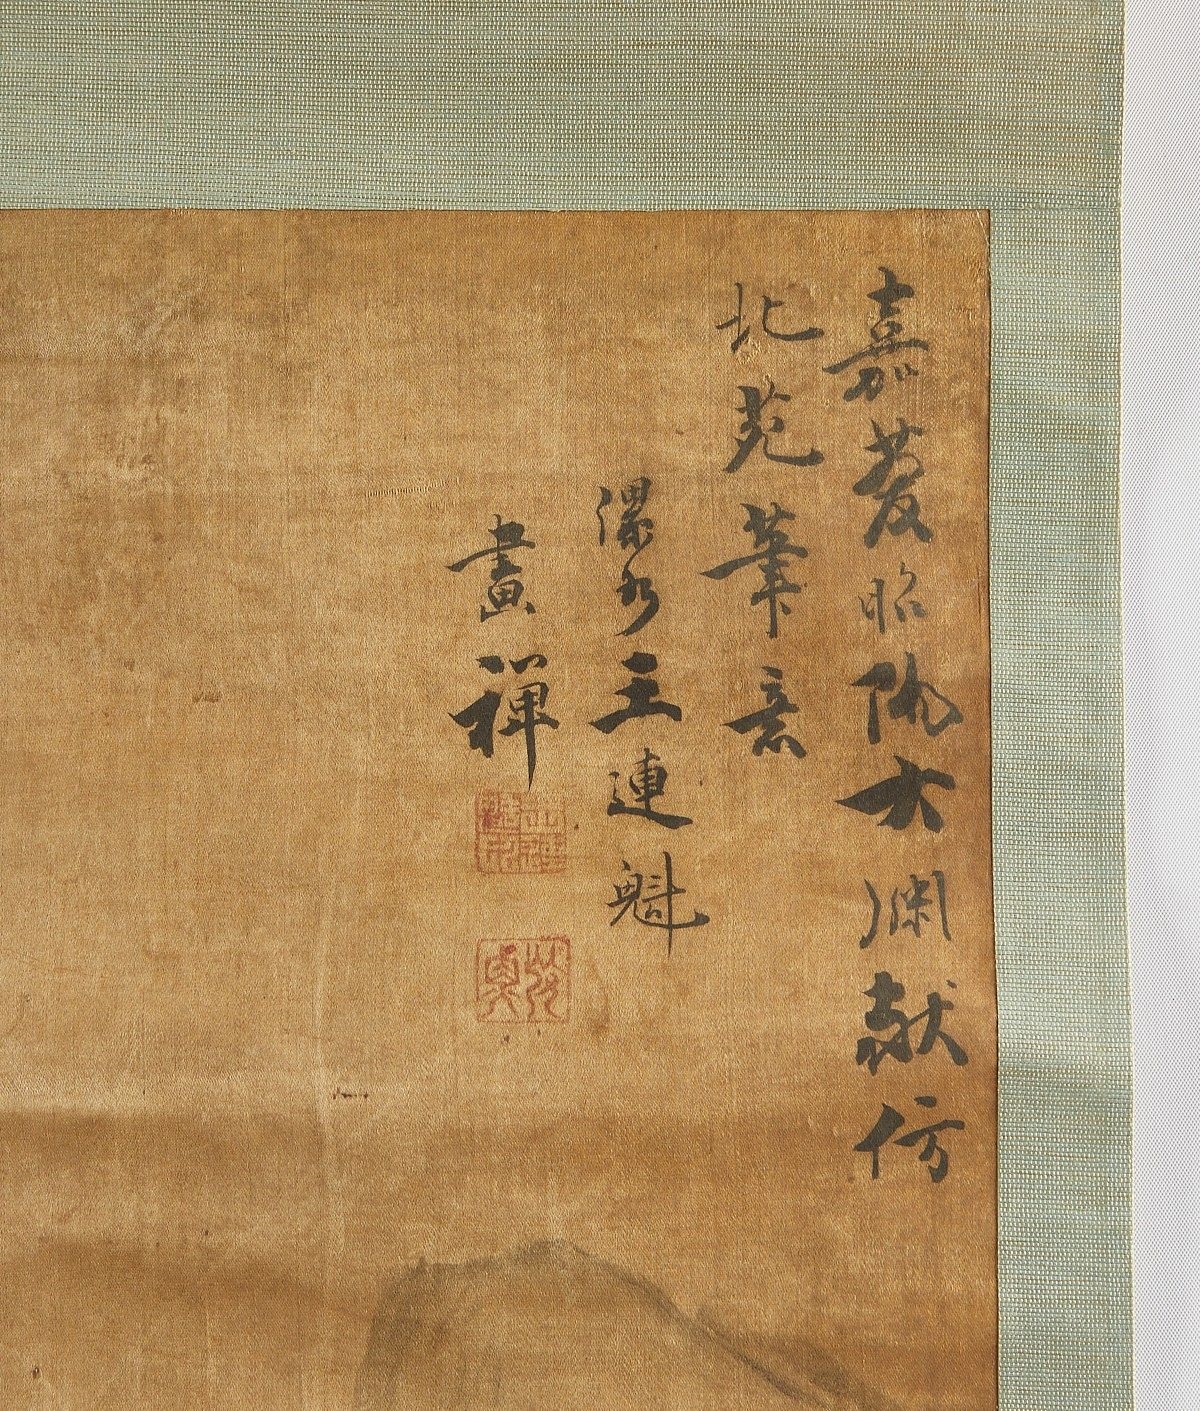 嘉慶昭陽大淵献仿
北苑筆意
瀑水王連魁
畫禪